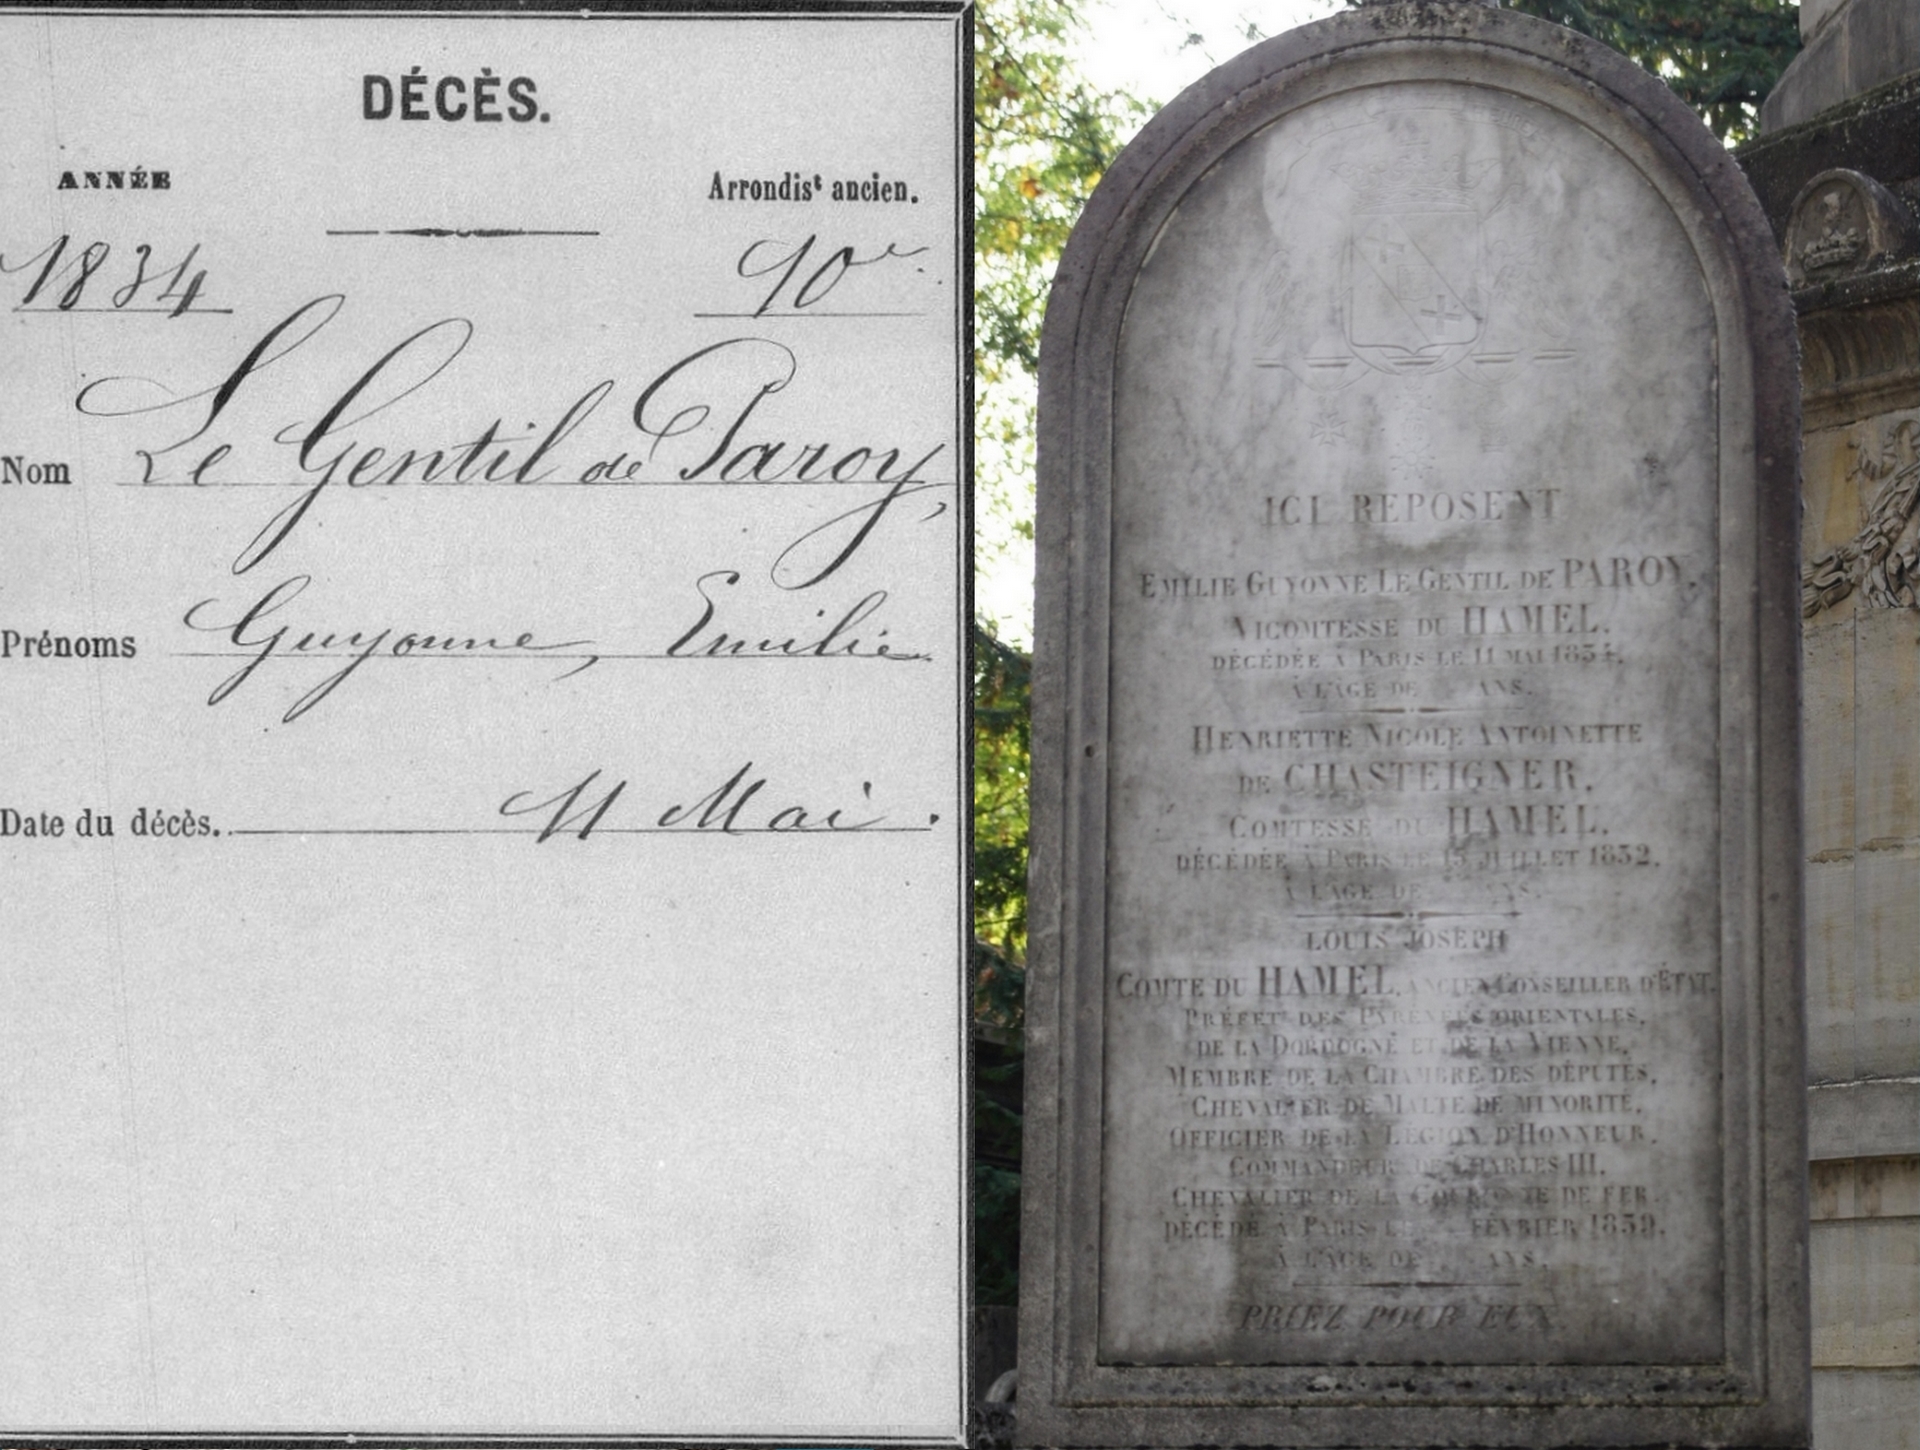 DÉCÈS.
ANNÉE
Arrondisᵗ ancien.
1834
10e
Nom Le Gentil de Paroy,
Prénoms Guyonne, Emilie
Date du décès. 11 Mai.
ICI REPOSENT
EMILIE GUYONNE LE GENTIL DE PAROY,
VICOMTESSE DU HAMEL.
DÉCÉDÉE À PARIS LE 11 MAI 1834,
À L'ÂGE DE ANS.
HENRIETTE NICOLE ANTOINETTE
DE CHASTEIGNER,
COMTESSE DU HAMEL.
DÉCÉDÉE À PARIS LE 15 JUILLET 1832,
À L'ÂGE DE ANS.
LOUIS JOSEPH
COMTE DU HAMEL, ANCIEN CONSEILLER D'ÉTAT,
PRÉFET DES PYRÉNÉES ORIENTALES,
DE LA DORDOGNE ET DE LA VIENNE,
MEMBRE DE LA CHAMBRE DES DÉPUTÉS,
CHEVALIER DE MALTE DE MINORITÉ,
OFFICIER DE LA LÉGION D'HONNEUR,
COMMANDEUR DE CHARLES III,
CHEVALIER DE LA COURONNE DE FER,
DÉCÉDÉ À PARIS LE FÉVRIER 1859,
À L'ÂGE DE ANS.
PRIEZ POUR EUX.